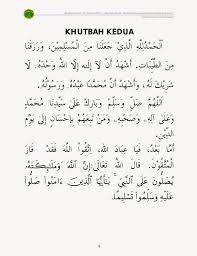 KHUTBAH KEDUA
اَلْحَمْدُلِلَّهِ الَّذِيْ جَعَلَنَا مِنَ الْمُسْلِمِيْنَ، وَرَزَقَنَا
مِنَ الطَّيِّبَاتِ. أَشْهَدُ أَنْ لاَ إِلٰهَ إِلاَّ اللهُ وَحْدَهُ لاَ
شَرِيْكَ لَهُ، وَأَشْهَدُ أَنَّ مُحَمَّدًا عَبْدُهُ وَرَسُوْلُهُ.
اَللَّهُمَّ صَلِّ وَسَلِّمْ وَبَارِكْ عَلَى سَيِّدِنَا مُحَمَّدٍ
وَعَلَى آلِهِ وَصَحْبِهِ، وَمَنْ تَبِعَهُمْ بِإِحْسَانٍ إِلَى يَوْمِ
الدِّيْنِ.
أَمَّا بَعْدُ، فَيَا عِبَادَ اللهِ، اتَّقُوْا اللهَ فَقَدْ فَازَ
الْمُتَّقُوْنَ. قَالَ اللهُ تَعَالَى: إِنَّ ٱللَّهَ وَمَلَٰٓئِكَتَهُۥ
يُصَلُّونَ عَلَى ٱلنَّبِيِّ ۚ يَٰٓأَيُّهَا ٱلَّذِينَ ءَامَنُوا۟ صَلُّوا۟
عَلَيْهِ وَسَلِّمُوا۟ تَسْلِيمًا.